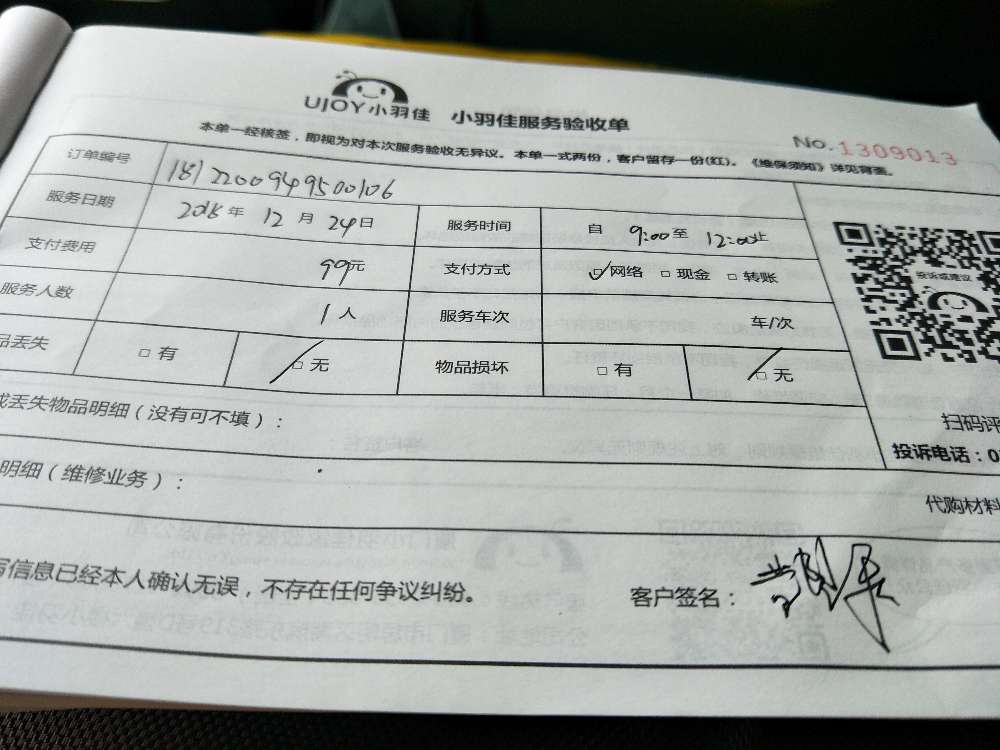 UJOY小羽佳 小羽佳服务验收单
No.1309013
本单一经核签，即视为对本次服务验收无异议。本单一式两份，客户留存一份(红)。《维保须知》详见背面。
订单编号 1812200949500106
服务日期 2018年 12月 24日 服务时间 自 9:00至 12:00止
支付费用 99元 支付方式 ☑网络 □现金 □转账
服务人数 1人 服务车次 车/次
品丢失 □有 □无 物品损坏 □有 □无
投诉或建议
或丢失物品明细（没有可不填）：
扫码评
投诉电话：0
明细（维修业务）：
代购材料
写信息已经本人确认无误，不存在任何争议纠纷。
客户签名：